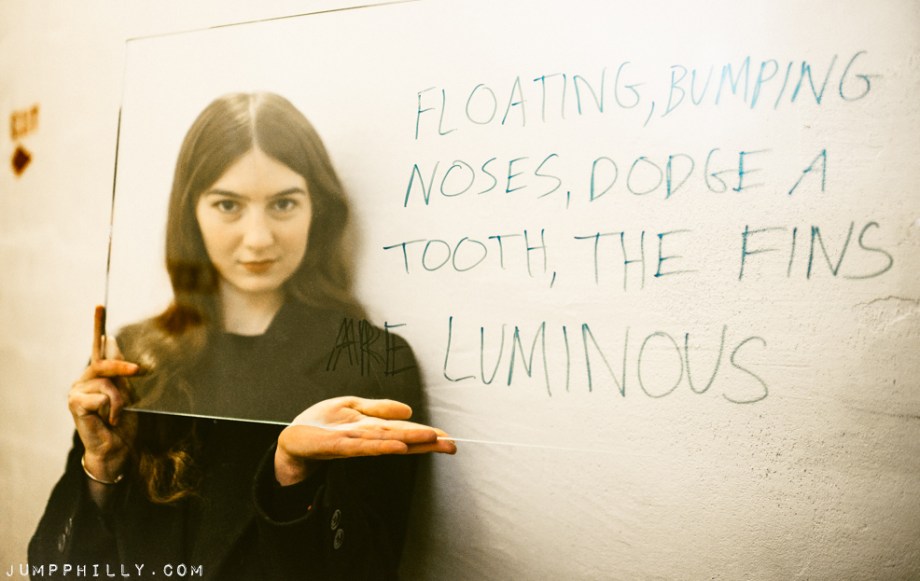 EXIT
FLOATING, BUMPING
NOSES, DODGE A
TOOTH, THE FINS
ARE LUMINOUS
JUMPPHILLY.COM